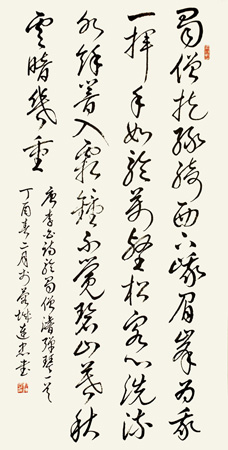 蜀僧抱綠綺西下峨眉峯為我
一揮手如聽萬壑松客心洗流
水餘響入霜鐘不覺碧山暮秋
雲暗幾重
唐李白詩聽蜀僧濬彈琴一首
丁酉春二月於蓉城 書